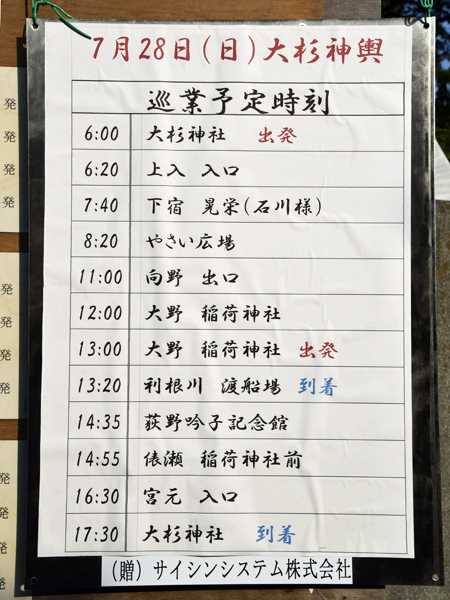 7月28日(日)大杉神輿
巡業予定時刻
6:00 大杉神社 出発
6:20 上入 入口
7:40 下宿 晃栄(石川様)
8:20 やさい広場
11:00 向野 出口
12:00 大野 稲荷神社
13:00 大野 稲荷神社 出発
13:20 利根川 渡船場 到着
14:35 荻野吟子記念館
14:55 俵瀬 稲荷神社前
16:30 宮元 入口
17:30 大杉神社 到着
(贈)サイシンシステム株式会社
発
発
発
発
発
発
発
発
発
発
発